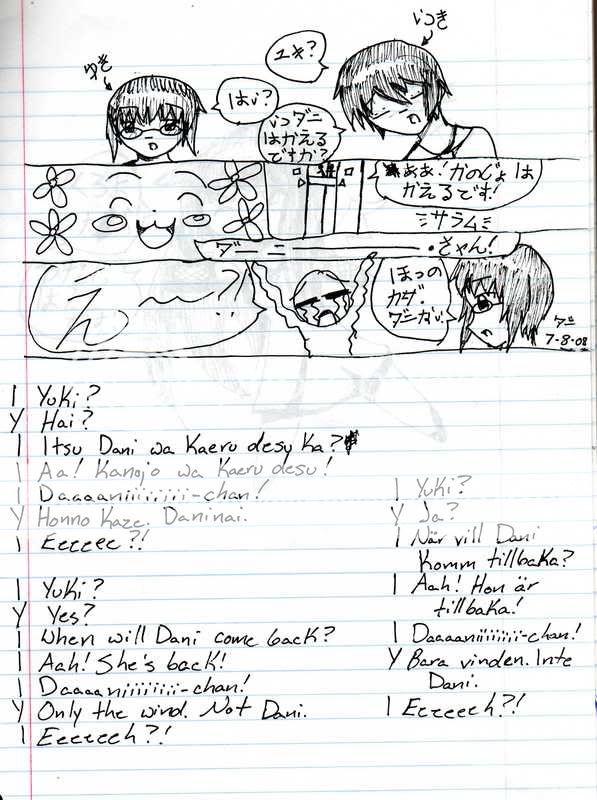 いつき
ゆき
ユキ?
はい?
いつダニ
はかえる
ですか?
ああ!かのじょは
かえるです!
サラム
ダーニー・さゃん!
え〜?!
ほっの
カザ.
ダニない
7-8-08
I Yuki?
Y Hai?
I Itsu Dani wa Kaeru desu Ka?
I Aa! Kanojo wa Kaeru desu!
I Daaaaniiiiiiii-chan!
Y Honno Kaze. Daninai.
I Eeeeee?!
I Yuki?
Y Yes?
I When will Dani come back?
I Aah! She's back!
I Daaaaniiiiiiii-chan!
Y Only the wind. Not Dani.
I Eeeeeeh?!
I Yuki?
Y Ja?
I När vill Dani
komm tillbaka?
I Aah! Hon är
tillbaka!
I Daaaaniiiiiiii-chan!
Y Bara vinden. Inte
Dani.
I Eeeeeeh?!